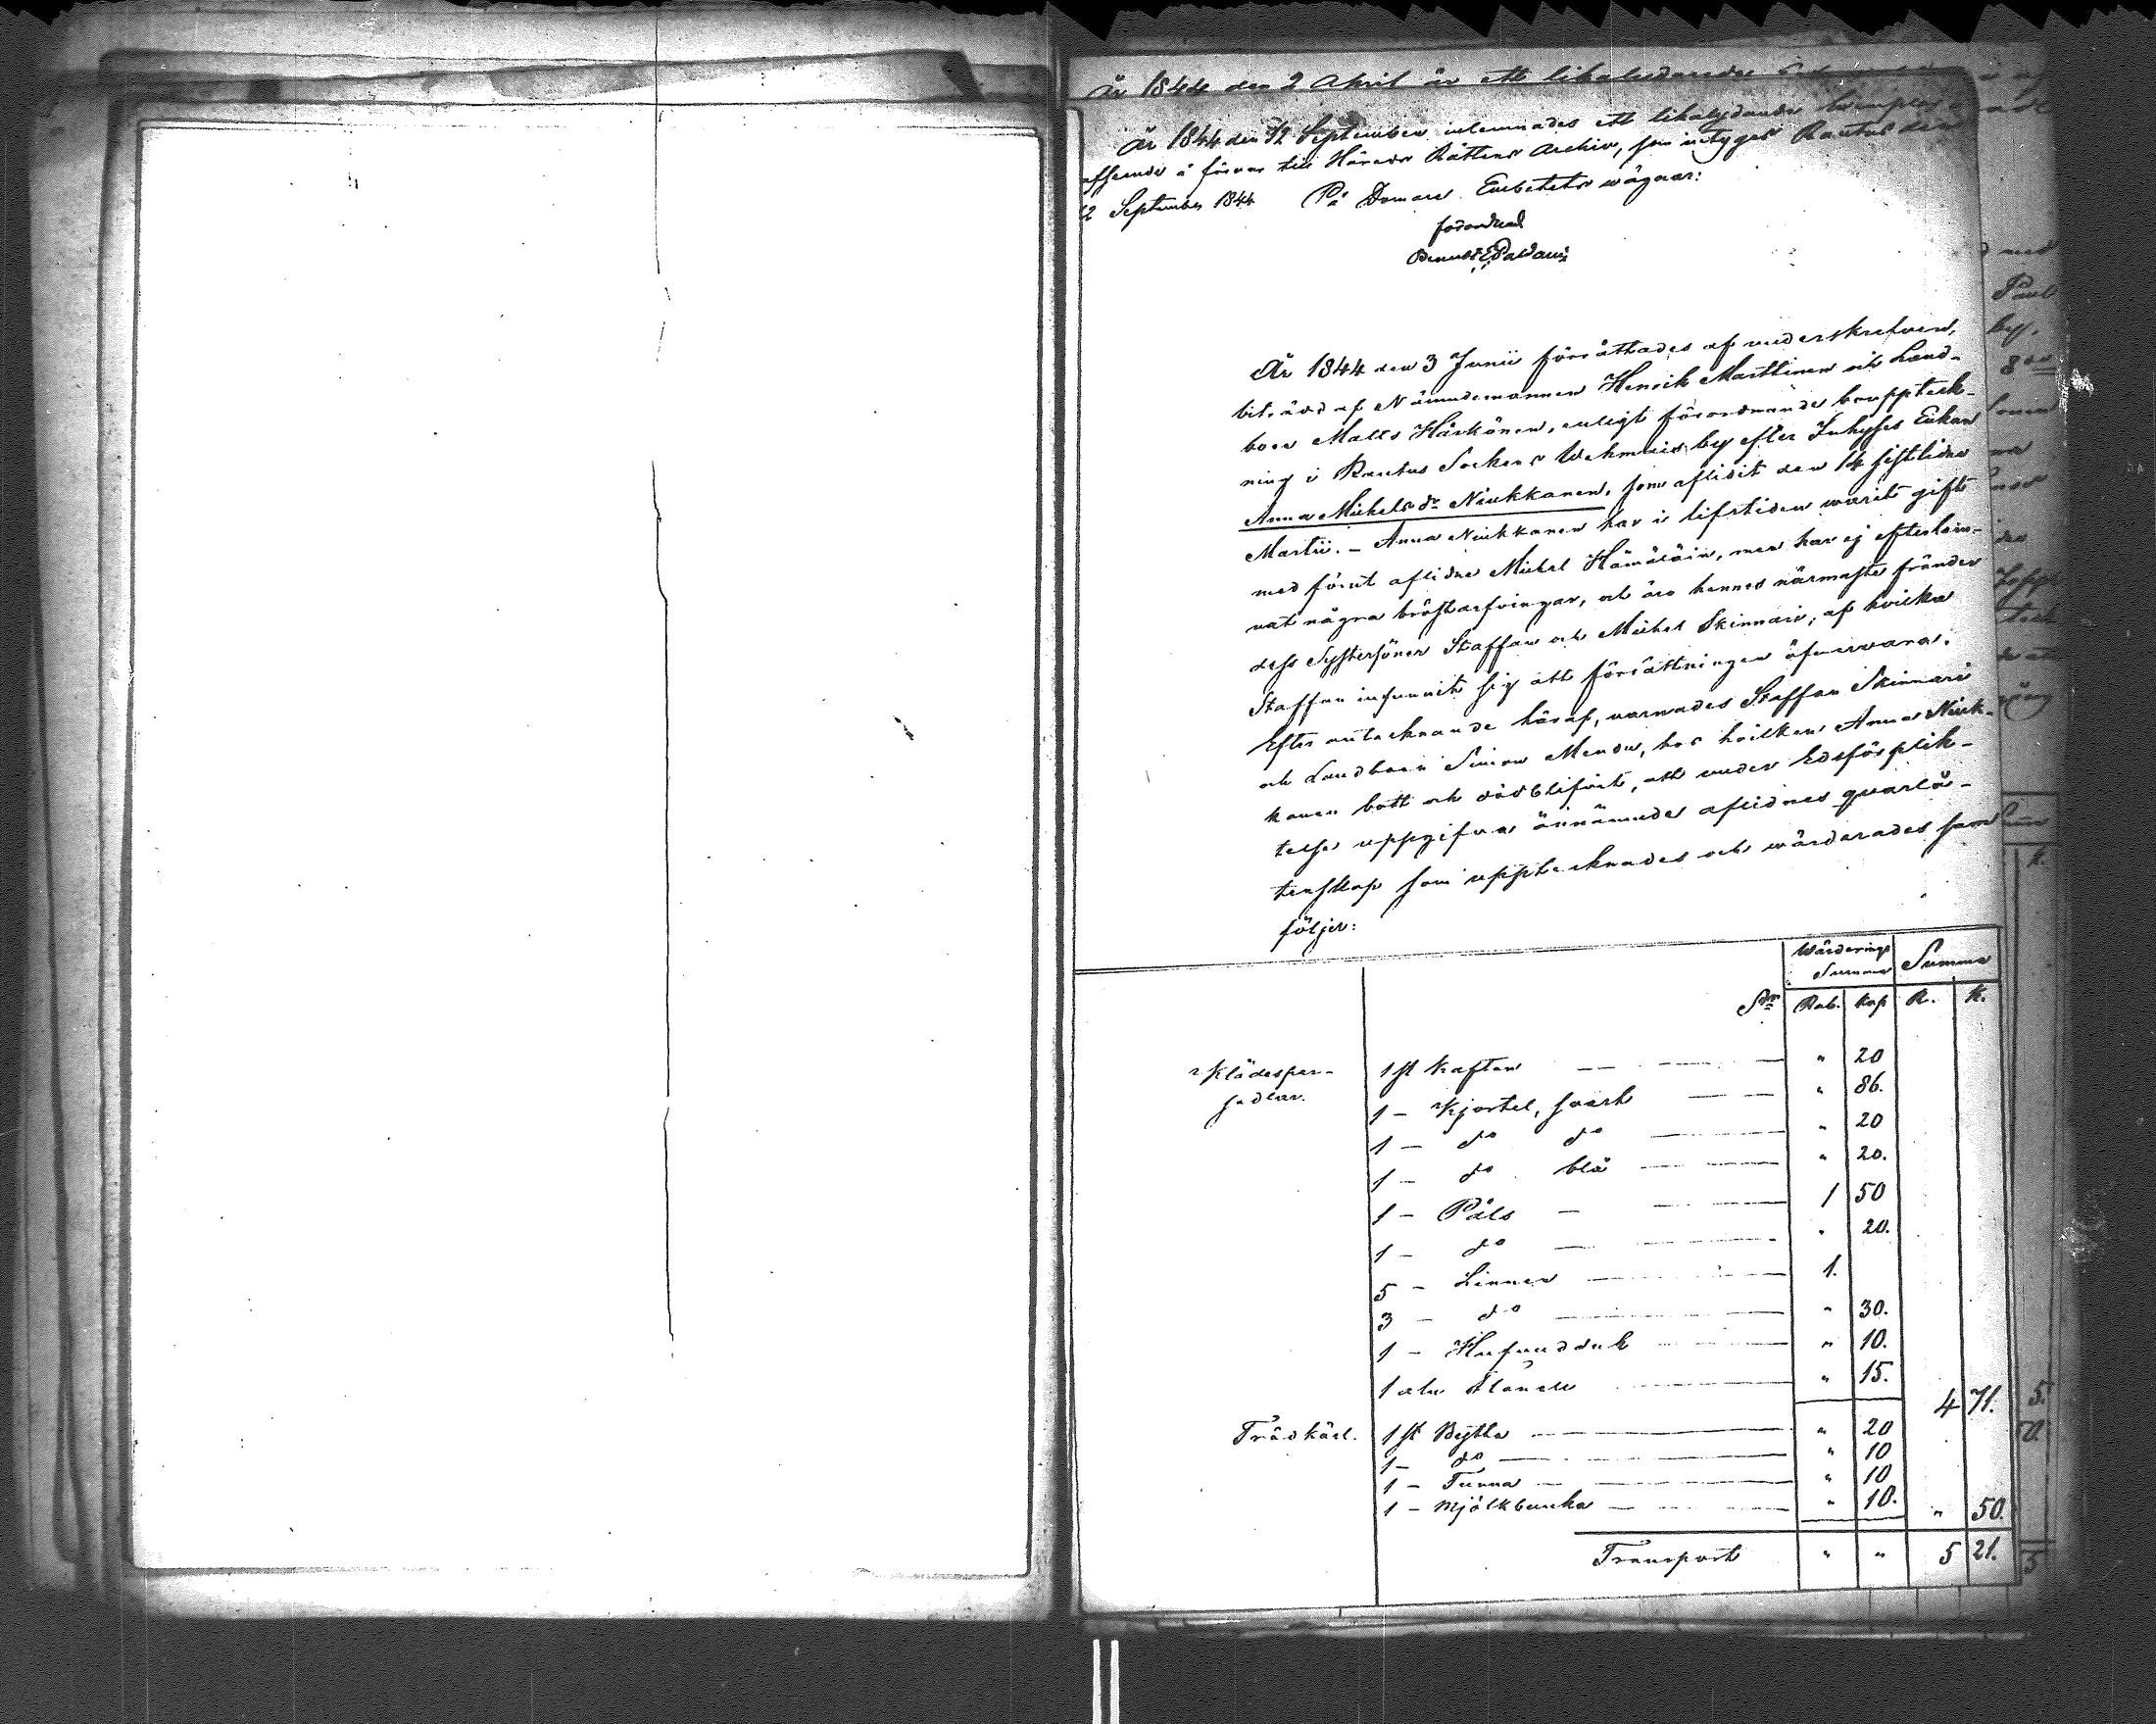 År 1844 den 2 April är ett likalydande
År 1844 den 12 September inlemnades ett likalydande Exemplar
afseende å förvar till Härads Rättens Archiv, som intygas Rautus den
12 September 1844 På Domare Embetets wägnar:
förordnad
År 1844 den 3 Junii förrättades af underskrefven,
biträdd af Nämndemannen Henrik Marttinen och Land-
boen Matts Härkönen, enligt förordnande bouppteck-
ning i Rautus Sockens Wehmais by efter Inhyses Enkan
Anna Michelsdr Niukkanen, som aflidit den 14 sistlidne
Martii. – Anna Niukkanen har i lifstiden warit gift
med förut aflidne Michel Hämäläin, men har ej efterlem-
nat några bröstarfvingar, och äro hennes närmaste fränder
dess Systersöner Staffan och Michel Skinnari, af hvilka
Staffan infunnit sig att förrättningen öfvervara.
Efter antecknande häraf, varnades Staffan Skinnari
och Landboen Simon Mendu, hos hvilken Anna Niuk-
kanen bott och dödblifvit, att under Edsförplik-
telse uppgifva omnämnde aflidnes quarlå-
tenskap som upptecknades och wärderades som
följer:
Wärderings Summa Summa
Sr Rub. Kop R. K.
Klädesper- 1 st Kaftan — " 20
sedlar. 1 – Kjortel, svart — " 86.
1 – do do — " 20
1 – do blå — " 20.
1 – Päls — 1 50
1 – do — " 20.
5 – Linnen — 1.
3 – do — " 30.
1 – Hufvudduk — " 10.
1 aln — " 15. 4 71.
Trädkärl. 1 st Bytta — " 20
1 – do — " 10
1 – Tunna — " 10
1 – Mjölkbunka — " 10. " 50.
Transport " " 5 21.